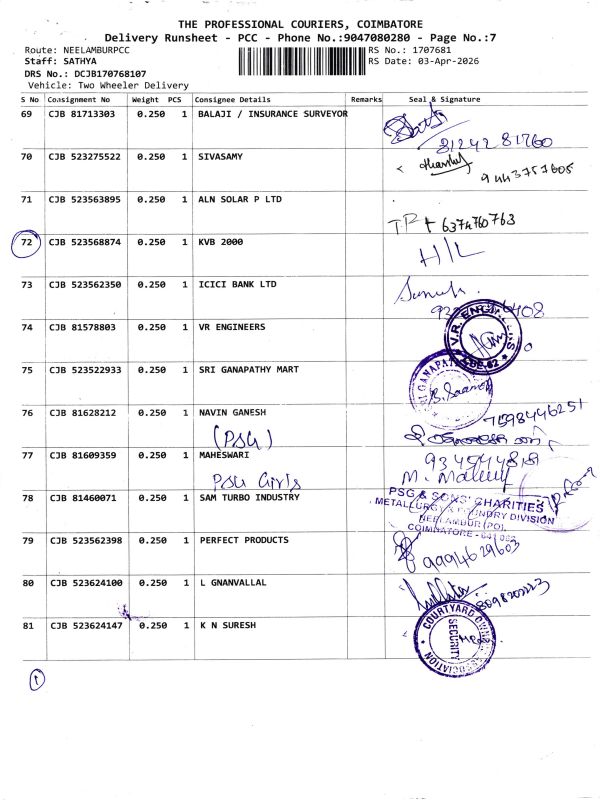 THE PROFESSIONAL COURIERS, COIMBATORE
Delivery Runsheet - PCC - Phone No.:9047080280 - Page No.:7
Route: NEELAMBURPCC
RS No.: 1707681
Staff: SATHYA
RS Date: 03-Apr-2026
DRS No.: DCJB170768107
Vehicle: Two Wheeler Delivery
S No Consignment No Weight PCS Consignee Details Remarks Seal & Signature
69 CJB 81713303 0.250 1 BALAJI / INSURANCE SURVEYOR
81242 81760
70 CJB 523275522 0.250 1 SIVASAMY
9443757605
71 CJB 523563895 0.250 1 ALN SOLAR P LTD
6374760763
72 CJB 523568874 0.250 1 KVB 2000
H/L
73 CJB 523562350 0.250 1 ICICI BANK LTD
74 CJB 81578803 0.250 1 VR ENGINEERS
V.R. ENGINEERS
75 CJB 523522933 0.250 1 SRI GANAPATHY MART
76 CJB 81628212 0.250 1 NAVIN GANESH
7598446251
(PSG)
77 CJB 81609359 0.250 1 MAHESWARI
PSG Girls
78 CJB 81460071 0.250 1 SAM TURBO INDUSTRY
PSG & SONS' CHARITIES
METALLURGY & FOUNDRY DIVISION
NEELAMBUR (PO),
COIMBATORE - 641 062
79 CJB 523562398 0.250 1 PERFECT PRODUCTS
9994629603
80 CJB 523624100 0.250 1 L GNANVALLAL
81 CJB 523624147 0.250 1 K N SURESH
COURTYARD OWNERS ASSOCIATION
SECURITY